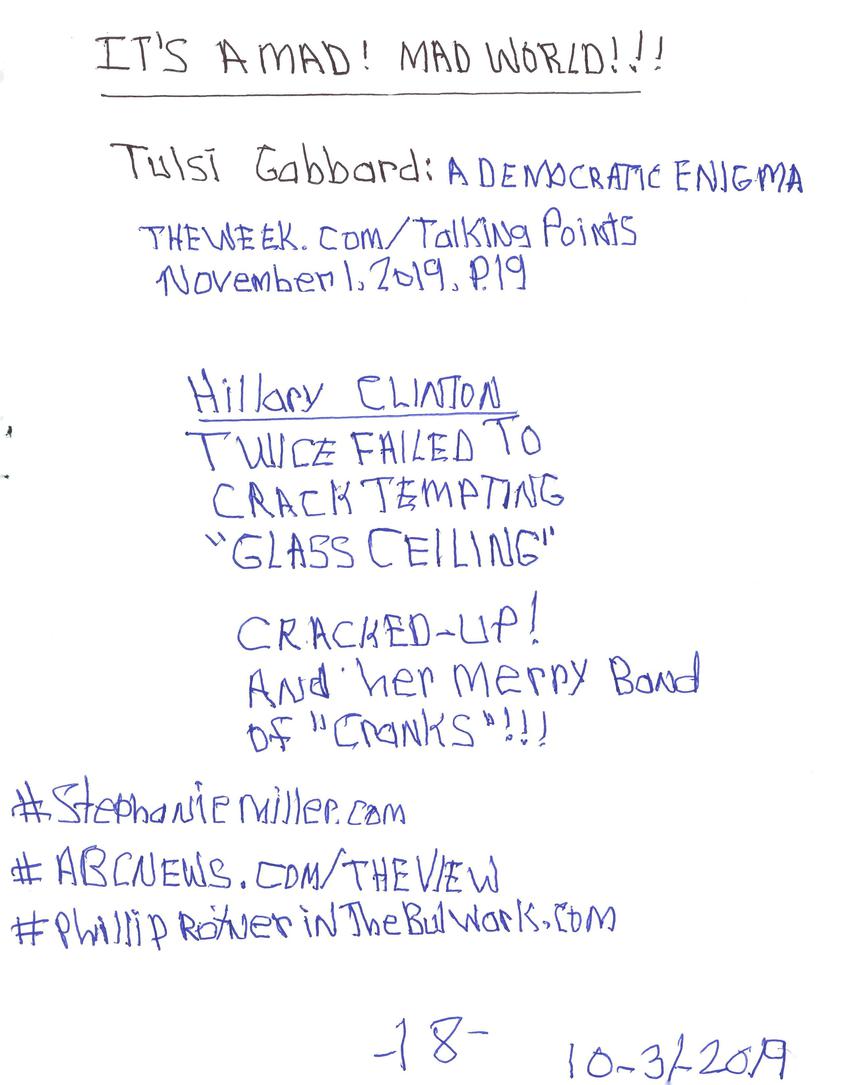 IT'S A MAD! MAD WORLD!!!
Tulsi Gabbard: A DEMOCRATIC ENIGMA
THEWEEK.COM/TalKiNg PoiNtS
November 1, 2019, P.19
Hillary CLINTON
TWICE FAILED TO
CRACK TEMPTING
"GLASS CEILING"
CRACKED-UP!
ANd her Merry Band
of "CraNKS"!!!
#Stephanie Miller.com
# ABCNEWS.COM/THEVIEW
#Phillip RotNer iN The BulWark.Com
-18- 10-31-2019